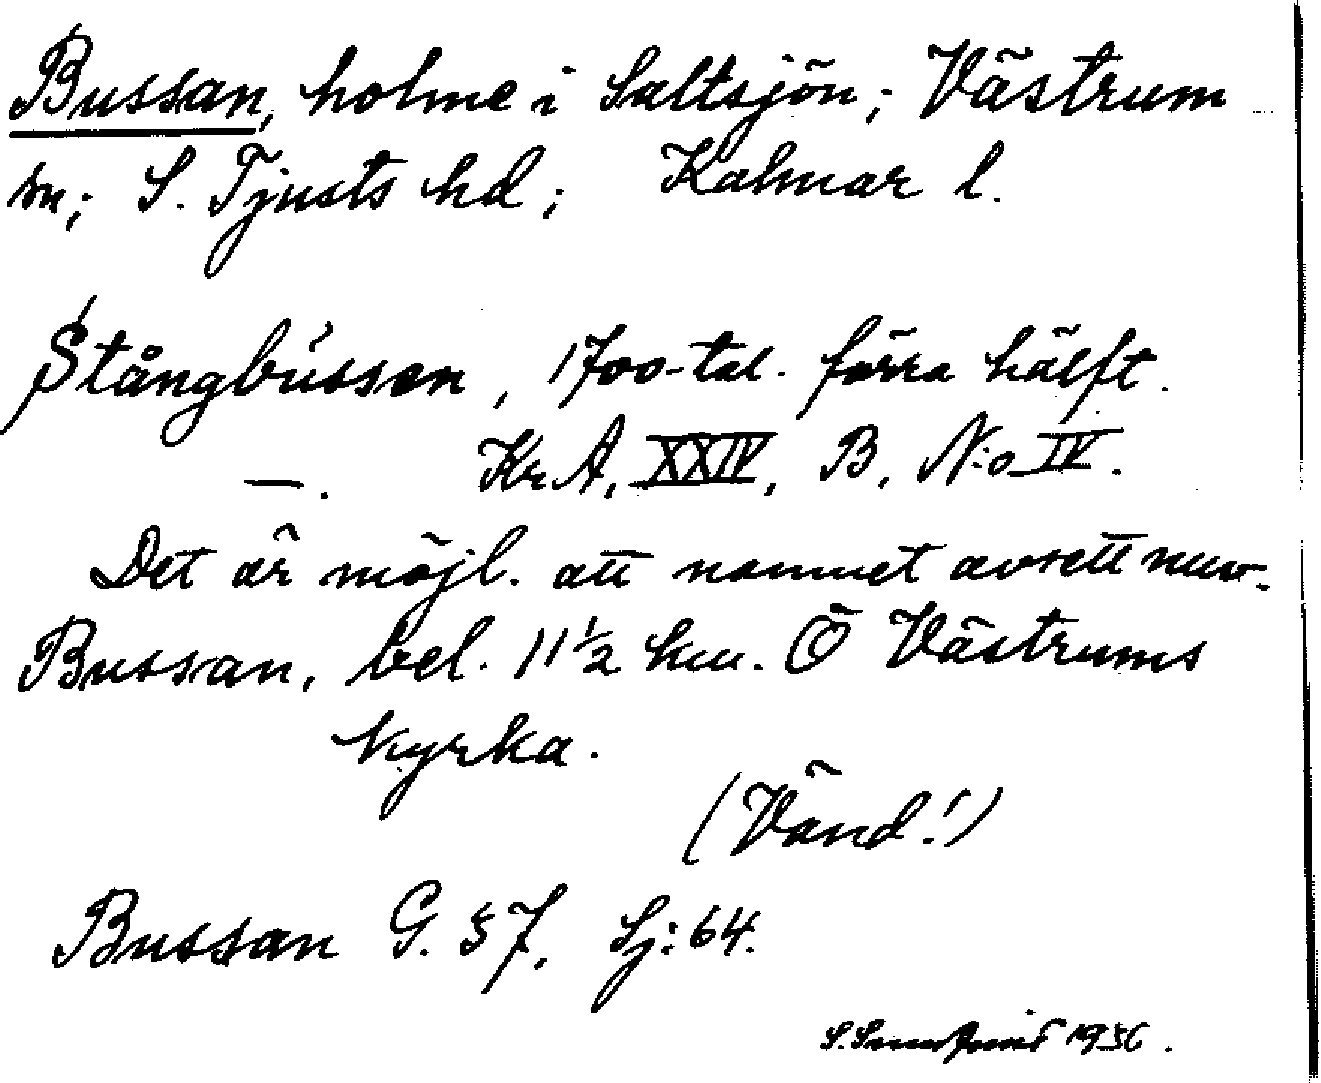 Bussan, holme i Saltsjön; Västrum
sn; S. Tjusts hd; Kalmar l.
Stångbússen, 1700-tal. förra hälft.
—. Kr. A, XXIV, B, N:o IV.
Det är möjl. att namnet avsett nuv.
Bussan, bel. 11 ½ km. Ö Västrums
kyrka.
(Vänd!)
Bussan G. 57, Sj: 64.
1936.